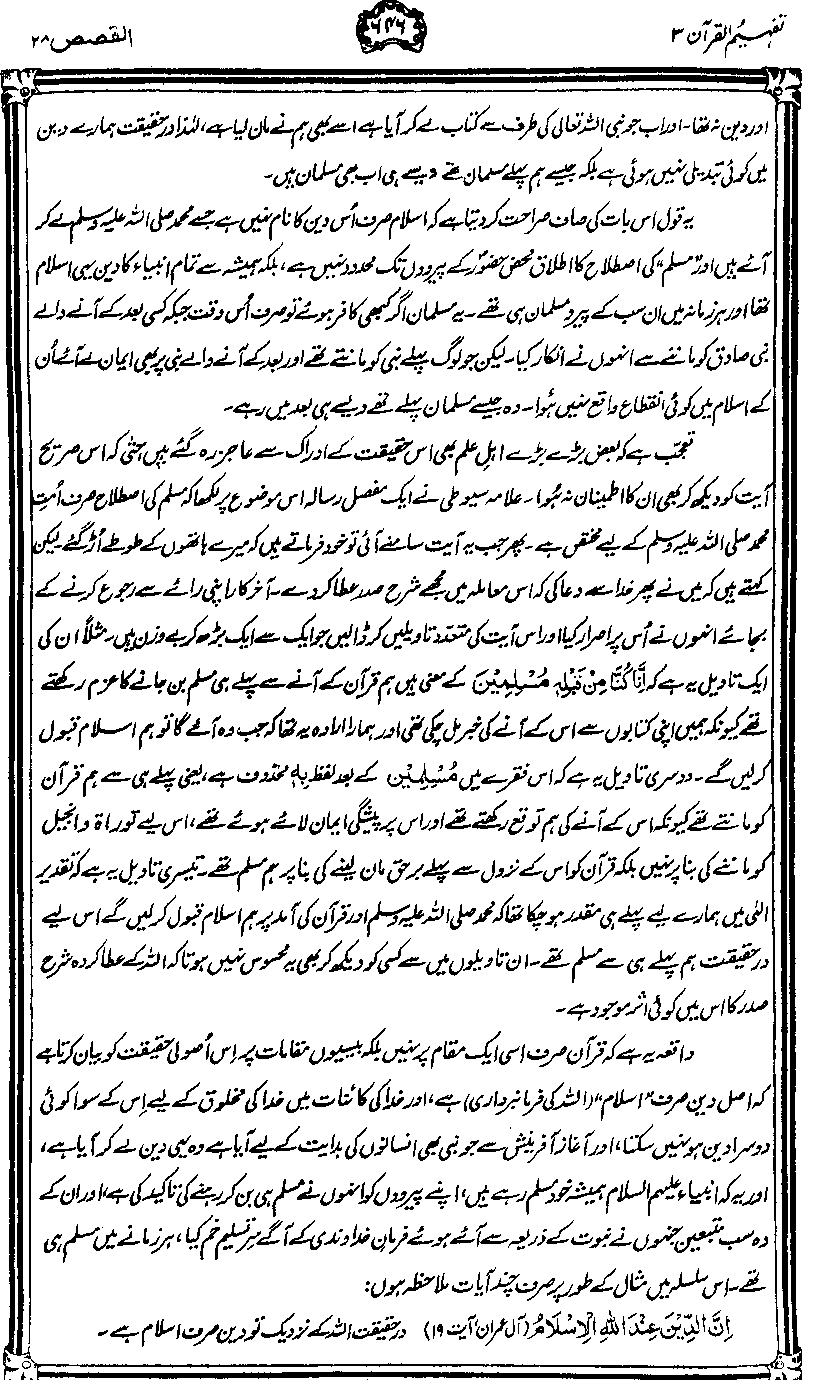 تفہیم القرآن ۳
۶۴۶
القصص ۲۸
اور دین نہ تھا۔ اور اب جو نبی اللہ تعالیٰ کی طرف سے کتاب لے کر آیا ہے اسے بھی ہم نے مان لیا ہے، لہٰذا درحقیقت ہمارے دین
میں کوئی تبدیلی نہیں ہوئی ہے بلکہ جیسے ہم پہلے مسلمان تھے ویسے ہی اب بھی مسلمان ہیں۔
یہ قول اس بات کی صاف صراحت کر دیتا ہے کہ اسلام صرف اُس دین کا نام نہیں ہے جسے محمد صلی اللہ علیہ وسلم لے کر
آئے ہیں اور "مسلم" کی اصطلاح کا اطلاق محض حضورؐ کے پیرووں تک محدود نہیں ہے، بلکہ ہمیشہ سے تمام انبیاء کا دین یہی اسلام
تھا اور ہر زمانہ میں ان سب کے پیرو مسلمان ہی تھے۔ یہ مسلمان اگر کبھی کافر ہوئے تو صرف اُس وقت جبکہ کسی بعد کے آنے والے
نبی صادق کو ماننے سے انہوں نے انکار کیا۔ لیکن جو لوگ پہلے نبی کو مانتے تھے اور بعد کے آنے والے نبی پر بھی ایمان لے آئے اُن
کے اسلام میں کوئی انقطاع واقع نہیں ہُوا۔ وہ جیسے مسلمان پہلے تھے ویسے ہی بعد میں رہے۔
تعجب ہے کہ بعض بڑے بڑے اہلِ علم بھی اس حقیقت کے ادراک سے عاجز رہ گئے ہیں حتّٰی کہ اس صریح
آیت کو دیکھ کر بھی ان کا اطمینان نہ ہُوا۔ علامہ سیوطی نے ایک مفصل رسالہ اس موضوع پر لکھا کہ مسلم کی اصطلاح صرف اُمتِ
محمد صلی اللہ علیہ وسلم کے لیے مختص ہے۔ پھر جب یہ آیت سامنے آئی تو خود فرماتے ہیں کہ میرے ہاتھوں کے طوطے اُڑ گئے۔ لیکن
کہتے ہیں کہ میں نے پھر خدا سے دعا کی کہ اس معاملہ میں مجھے شرح صدر عطا کر دے۔ آخر کار اپنی رائے سے رجوع کرنے کے
بجائے انہوں نے اُس پر اصرار کیا اور اس آیت کی متعدد تاویلیں کر ڈالیں جو ایک سے ایک بڑھ کر بے وزن ہیں۔ مثلاً ان کی
ایک تاویل یہ ہے کہ اِنَّا كُنَّا مِنْ قَبْلِهٖ مُسْلِمِيْنَ کے معنی ہیں ہم قرآن کے آنے سے پہلے ہی مسلم بن جانے کا عزم رکھتے
تھے کیونکہ ہمیں اپنی کتابوں سے اس کے آنے کی خبر مل چکی تھی اور ہمارا ارادہ یہ تھا کہ جب وہ آئے گا تو ہم اسلام قبول
کر لیں گے۔ دوسری تاویل یہ ہے کہ اس فقرے میں مُسْلِمِيْنَ کے بعد لفظ بِهٖ محذوف ہے، یعنی پہلے ہی سے ہم قرآن
کو مانتے تھے کیونکہ اس کے آنے کی ہم توقع رکھتے تھے اور اس پر پیشگی ایمان لائے ہوئے تھے، اس لیے توراۃ و انجیل
کو ماننے کی بنا پر نہیں بلکہ قرآن کو اس کے نزول سے پہلے برحق مان لینے کی بنا پر ہم مسلم تھے۔ تیسری تاویل یہ ہے کہ تقدیر
الٰہی میں ہمارے لیے پہلے ہی مقدر ہو چکا تھا کہ محمد صلی اللہ علیہ وسلم اور قرآن کی آمد پر ہم اسلام قبول کر لیں گے اس لیے
درحقیقت ہم پہلے ہی سے مسلم تھے۔ ان تاویلوں میں سے کسی کو دیکھ کر بھی یہ محسوس نہیں ہوتا کہ اللہ کے عطا کردہ شرح
صدر کا اس میں کوئی اثر موجود ہے۔
واقعہ یہ ہے کہ قرآن صرف اسی ایک مقام پر نہیں بلکہ بیسیوں مقامات پر اِس اُصولی حقیقت کو بیان کرتا ہے
کہ اصل دین صرف "اسلام" (اللہ کی فرمانبرداری) ہے، اور خدا کی کائنات میں خدا کی مخلوق کے لیے اِس کے سوا کوئی
دوسرا دین ہو نہیں سکتا، اور آغازِ آفرینش سے جو نبی بھی انسانوں کی ہدایت کے لیے آیا ہے وہ یہی دین لے کر آیا ہے،
اور یہ کہ انبیاء علیہم السلام ہمیشہ خود مسلم رہے ہیں، اپنے پیرووں کو انہوں نے مسلم ہی بن کر رہنے کی تاکید کی ہے، اور ان کے
وہ سب متبعین جنہوں نے نبوت کے ذریعہ سے آئے ہوئے فرمانِ خداوندی کے آگے سرِ تسلیم خم کیا، ہر زمانے میں مسلم ہی
تھے۔ اس سلسلہ میں مثال کے طور پر صرف چند آیات ملاحظہ ہوں:
اِنَّ الدِّيْنَ عِنْدَ اللّٰهِ الْاِسْلَامُ (آل عمران، آیت ۱۹) درحقیقت اللہ کے نزدیک تو دین صرف اسلام ہے۔